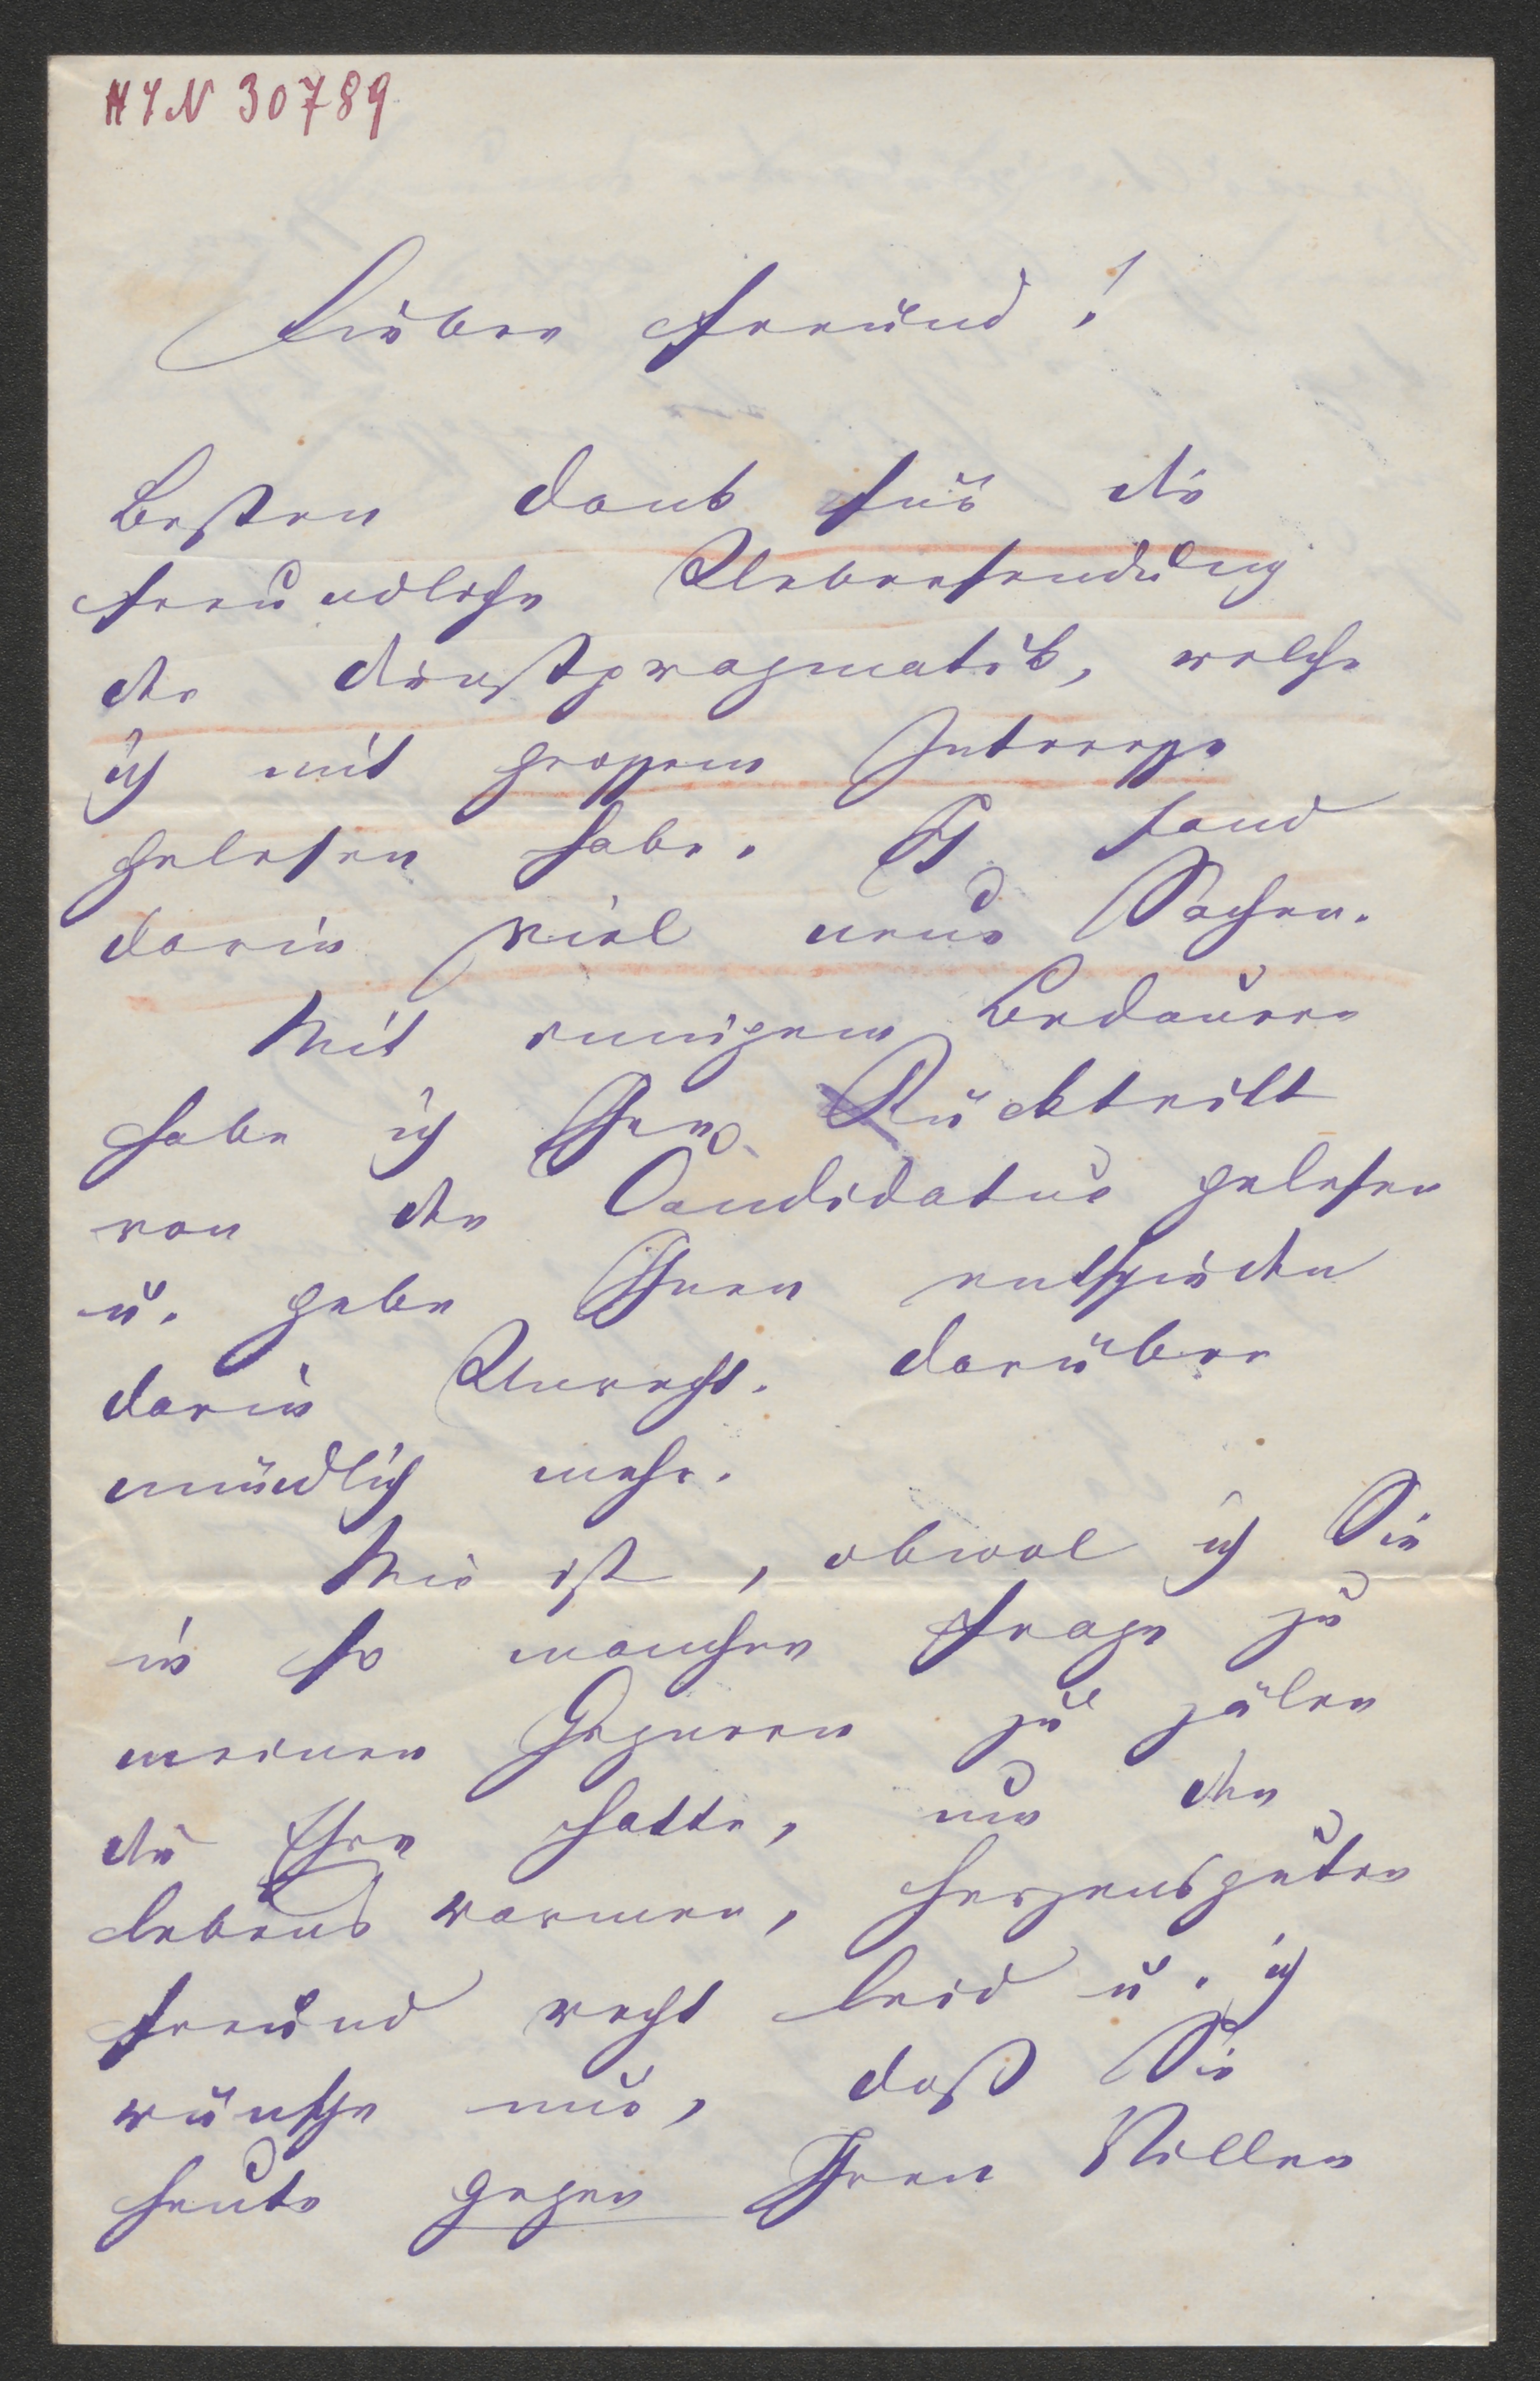 HIN 30789
Lieber Freund!
Besten Dank für die
freundliche Uebersendung
der Dienstpragmatik, welche
ich mit grossem Interesse
gelesen habe. Ich fand
darin viel neue Sachen.
Mit innigem Bedauern
habe ich Ihren Rücktritt
von der Candidatur gelesen
u. gebe Ihnen entschieden
darin Unrecht. Darüber
mündlich mehr.
Mir ist, obwol ich Sie
in so manchen Frage zu
meinen Gegnern zu zälen
die Ehre hatte, um den
lebens warmen, herzensguten
Freund recht leid u. ich
wünsche nur, daß Sie
heute gegen Ihren Willen